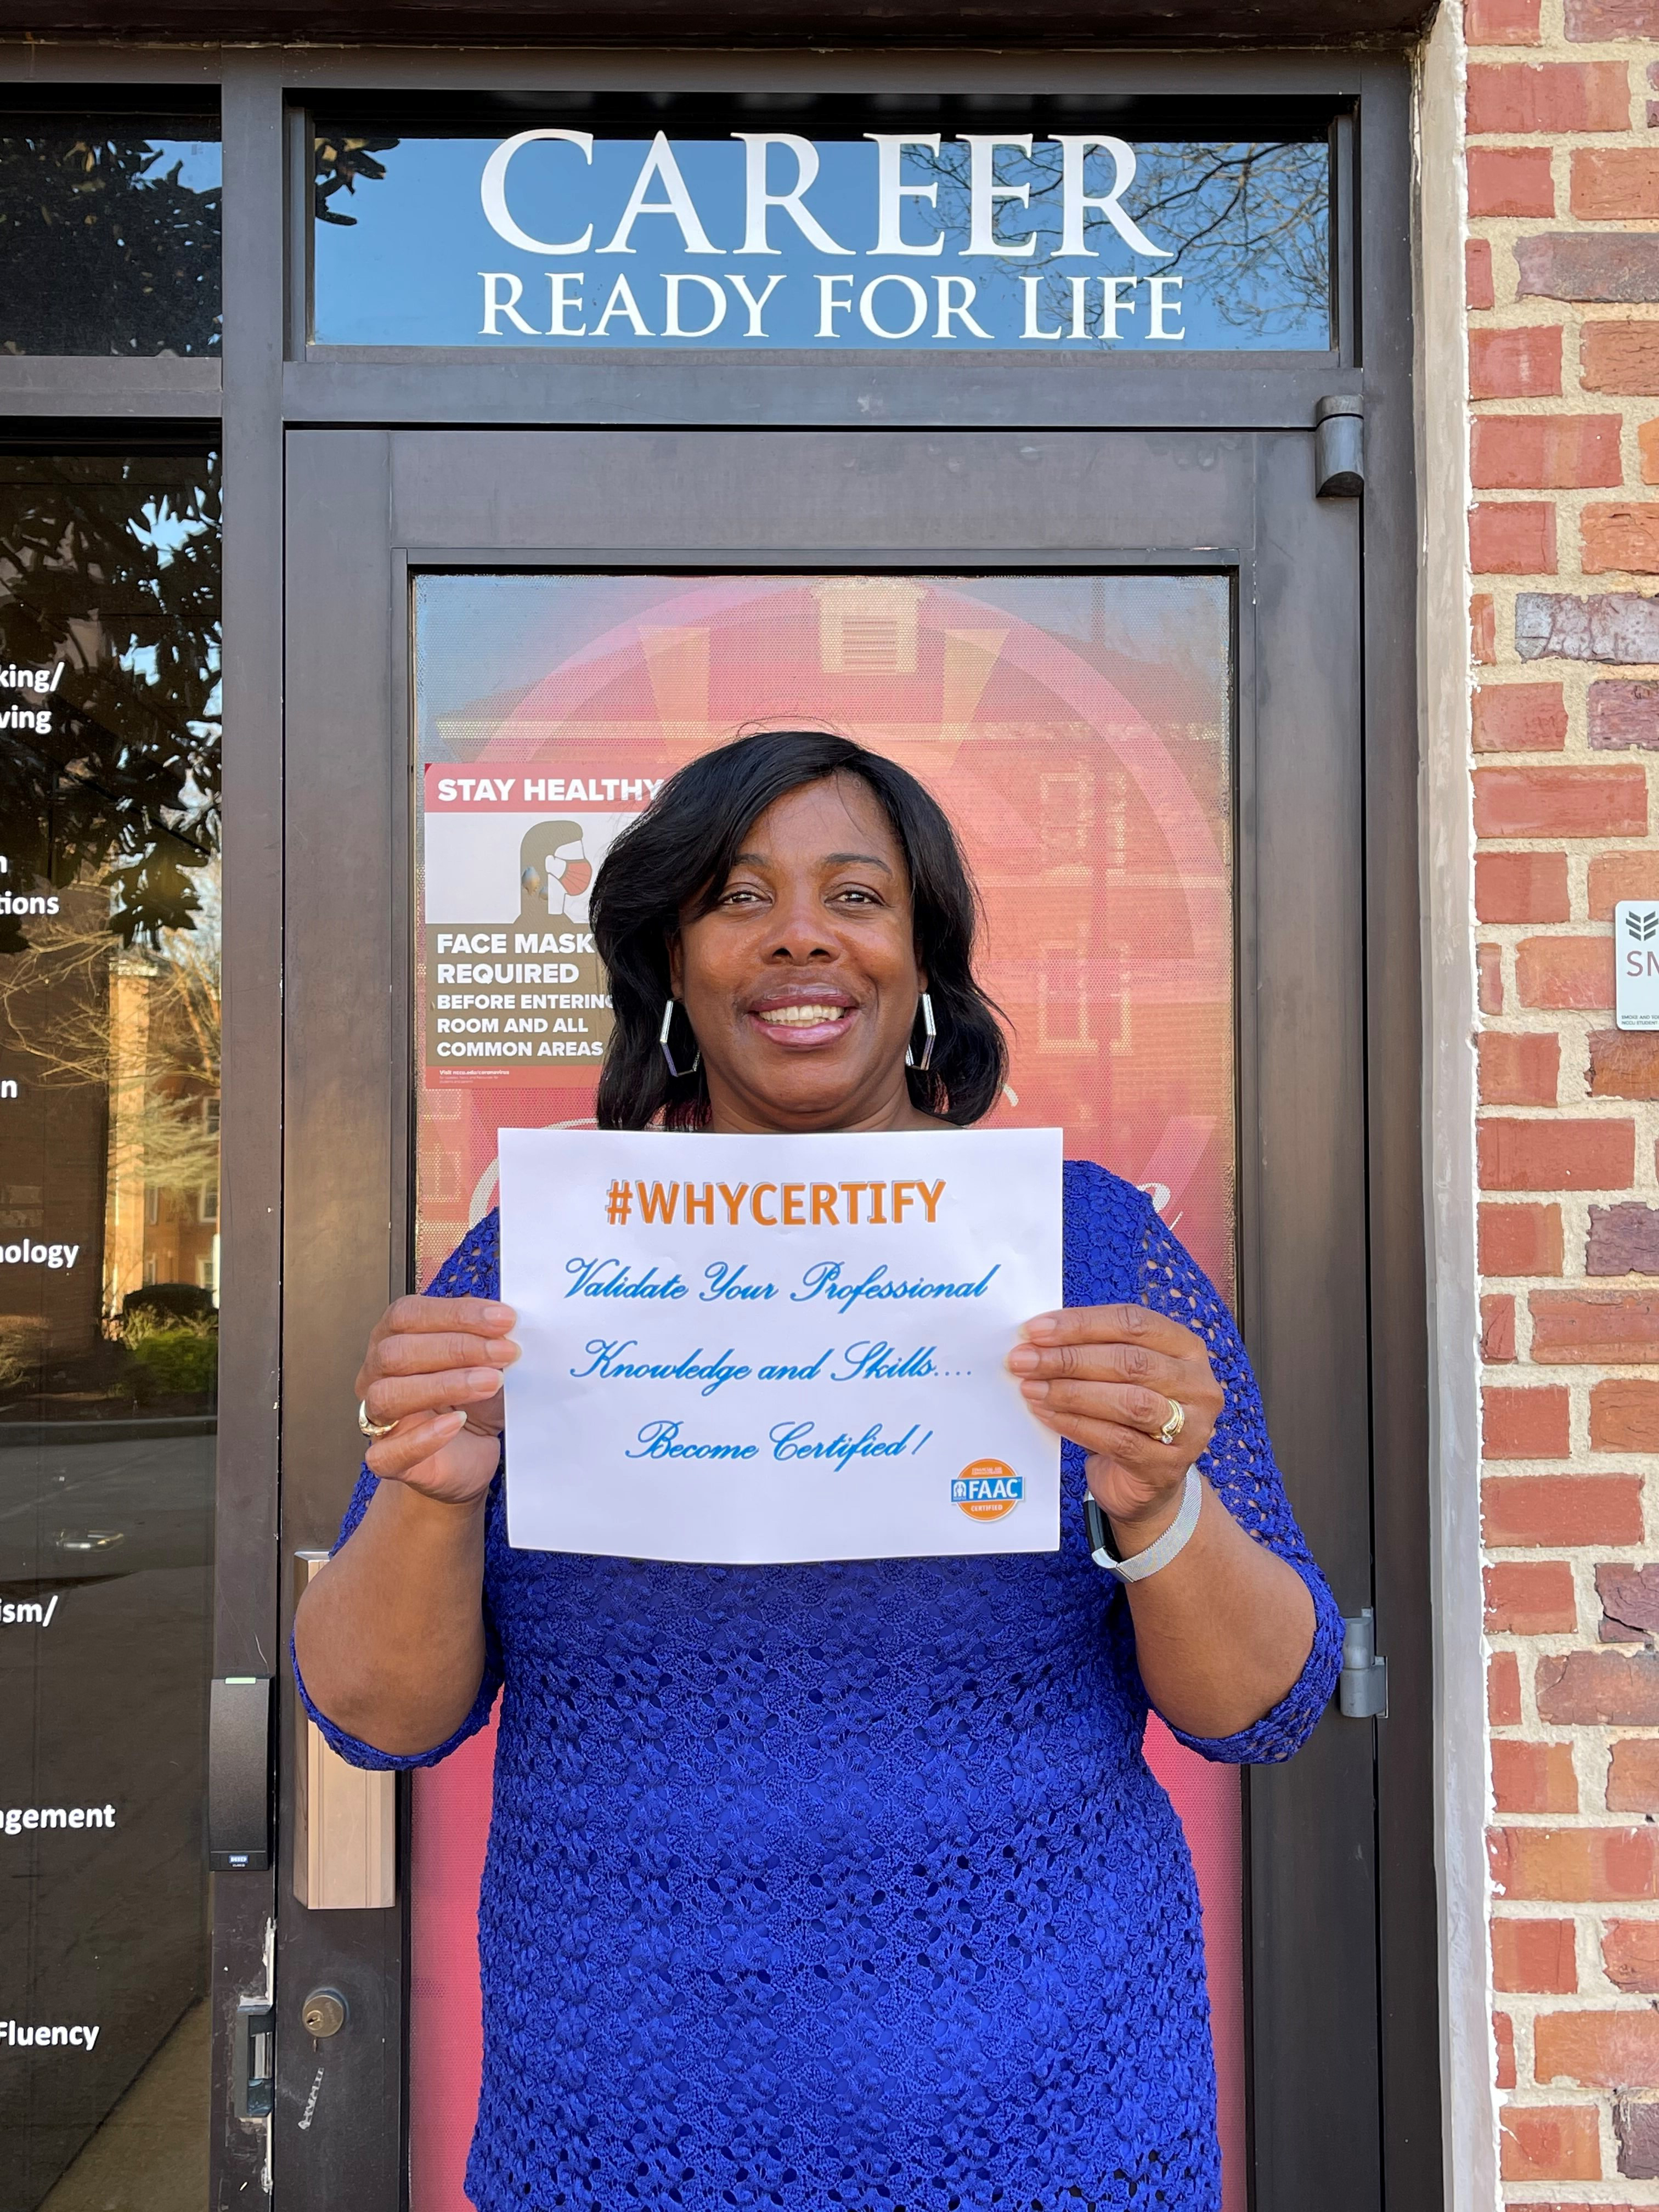 CAREER
READY FOR LIFE
king/
ving
tions
n
nology
ism/
agement
Fluency
STAY HEALTHY
FACE MASK
REQUIRED
BEFORE ENTERING
ROOM AND ALL
COMMON AREAS
#WHYCERTIFY
Validate Your Professional
Knowledge and Skills....
Become Certified!
FAAC
CERTIFIED
SM